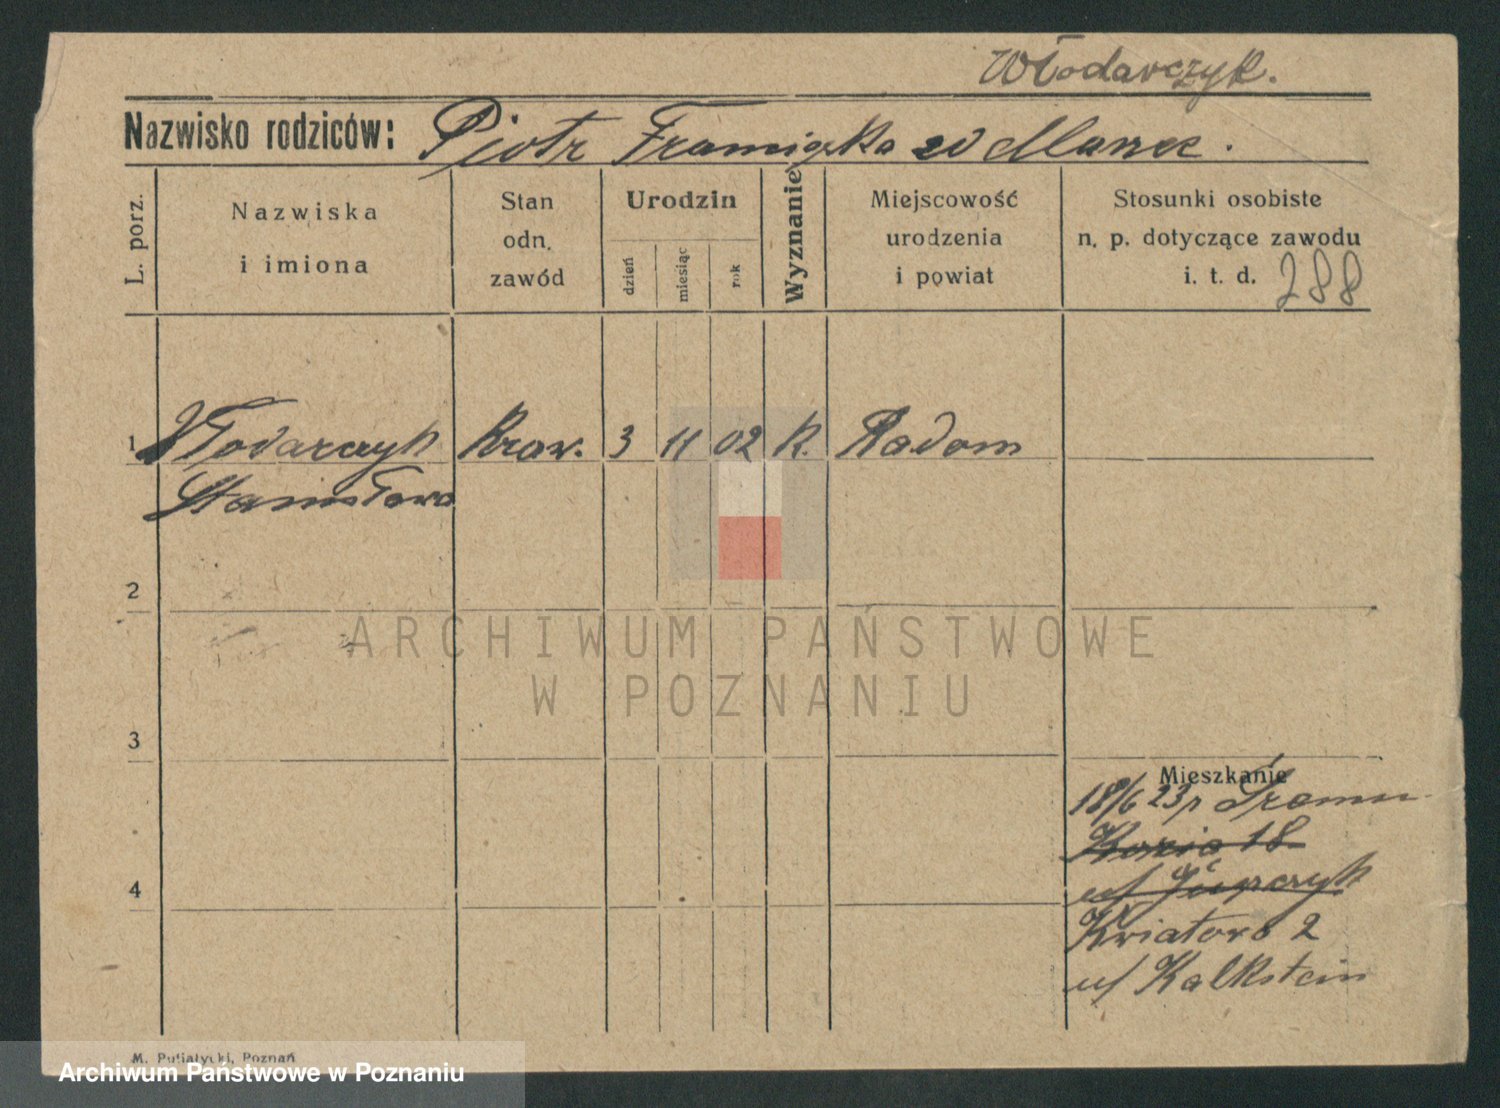 Włodarczyk.
Nazwisko rodziców: Piotr Franciszka zd
L. porz.
Nazwiska
i imiona
Stan
odn.
zawód
Urodzin
dzień
miesiąc
rok
Wyznanie
Miejscowość
urodzenia
i powiat
Stosunki osobiste
n. p. dotyczące zawodu
i. t. d. 288
1 Włodarczyk Kraw. 3 11 02 K. Radom
Stanisława
2
ARCHIWUM PAŃSTWOWE
W POZNANIU
3
Mieszkanie
18/6 23 r
Kozia 18
Kwiatowa 2
Kalkstein
4
M. Putiatycki, Poznań
Archiwum Państwowe w Poznaniu